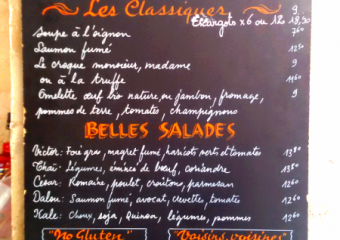 Les Classiques 9
Escargots x 6 ou 12 18,50
Soupe à l'oignon 7,60
Saumon fumé 12,50
Le croque monsieur, madame 9
ou à la truffe 11,60
Omelette œuf bio nature, ou jambon, fromage, 9
pommes de terre, tomates, champignons
BELLES SALADES
Victor: Foie gras, magret fumé, haricots verts et tomates 13,80
Thaï: Légumes, émincé de bœuf, coriandre 13,80
César: Romaine, poulet, croûtons, parmesan 12,60
Dalou: Saumon fumé, avocat, crevette, tomates 13,80
Kale: Choux, soja, Quinoa, légumes, pommes 12,60
"No Gluten" "Voisins, voisines"